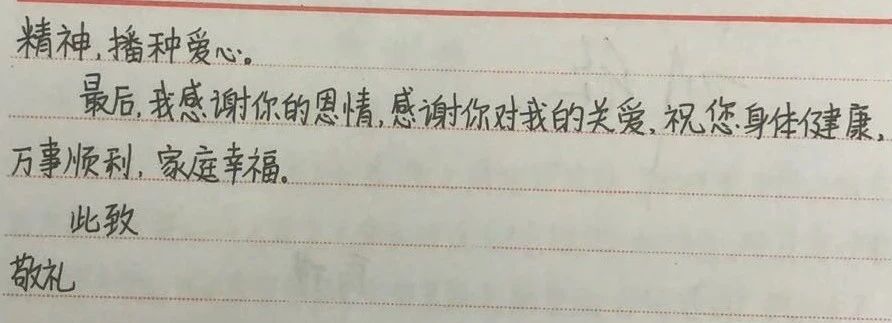 精神,播种爱心。
最后,我感谢你的恩情,感谢你对我的关爱,祝您身体健康,
万事顺利,家庭幸福。
此致
敬礼